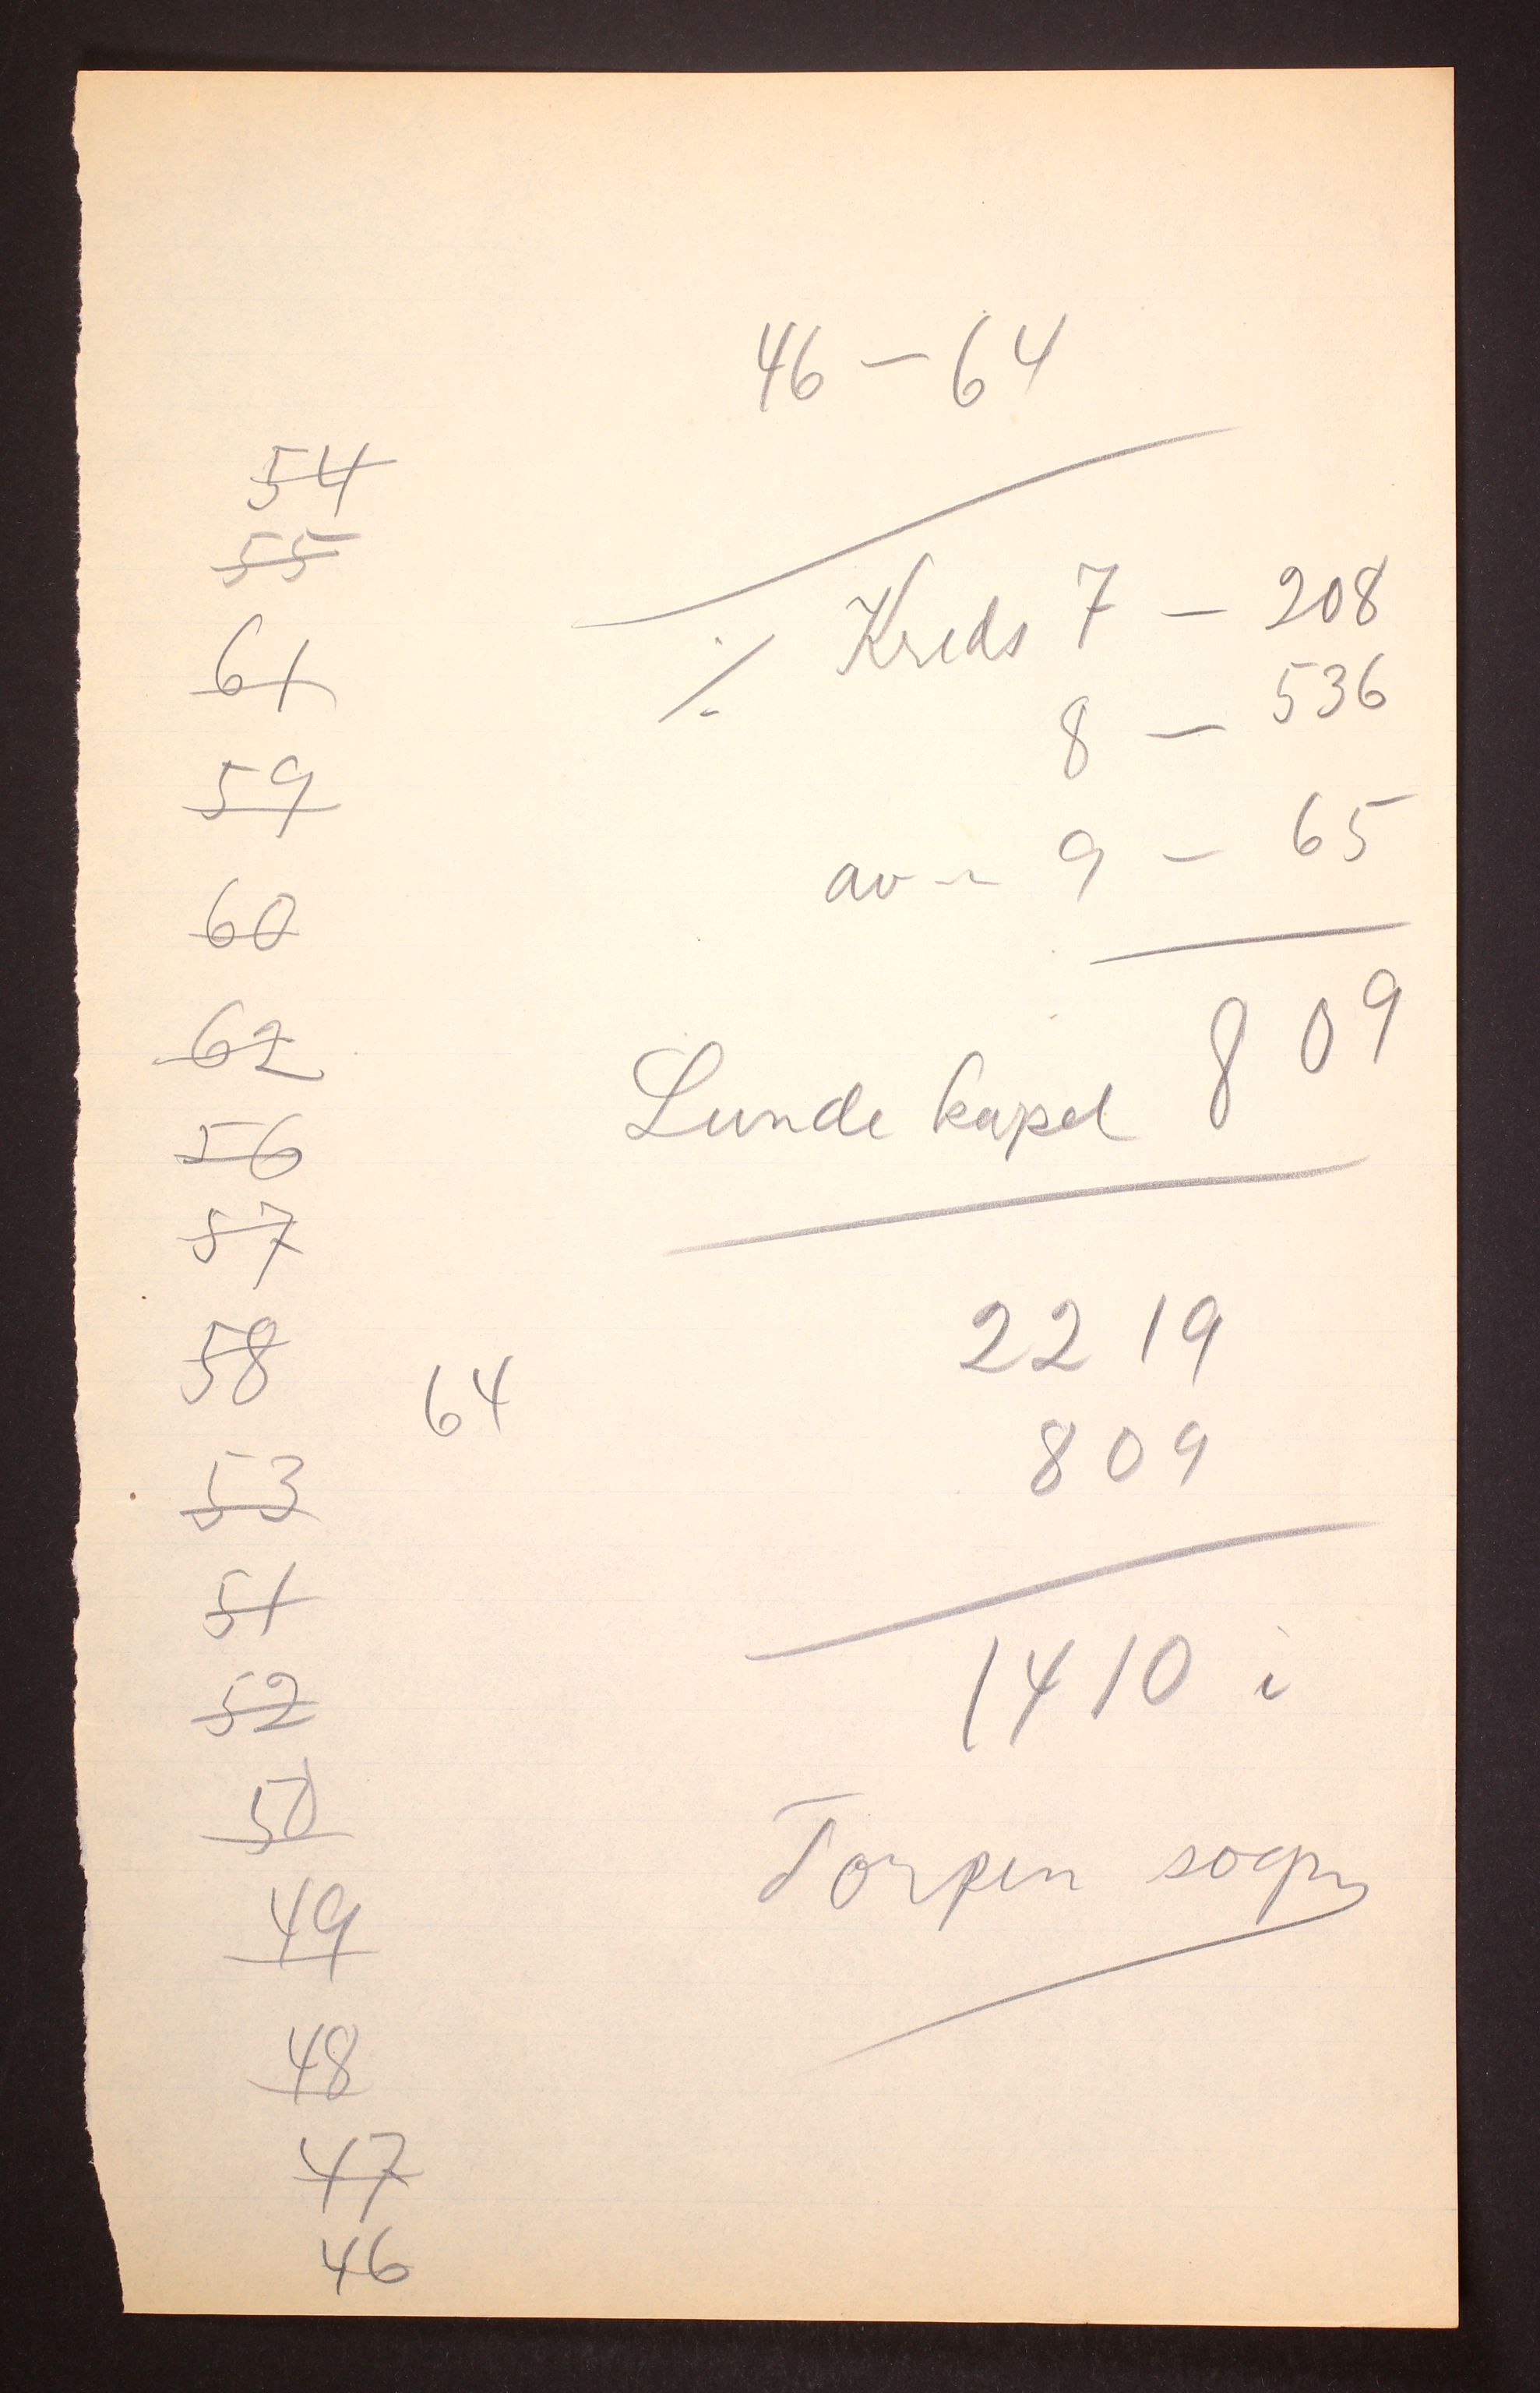 46 - 64
54
55
61
59
60
62
56
57
58
64
53
51
52
50
49
48
47
46
÷ Kreds 7 - 208
8 - 536
av - " - 9 - 65
809
Lunde kapel
2219
809
1410 i
Torpen sogn